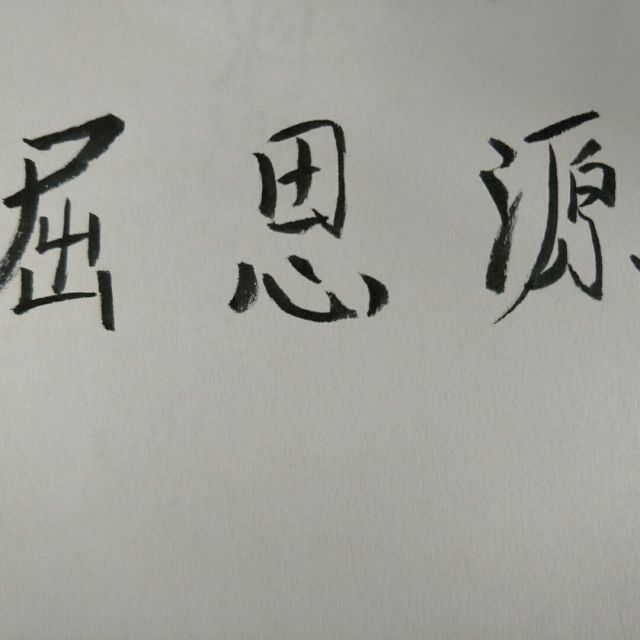 屈思源